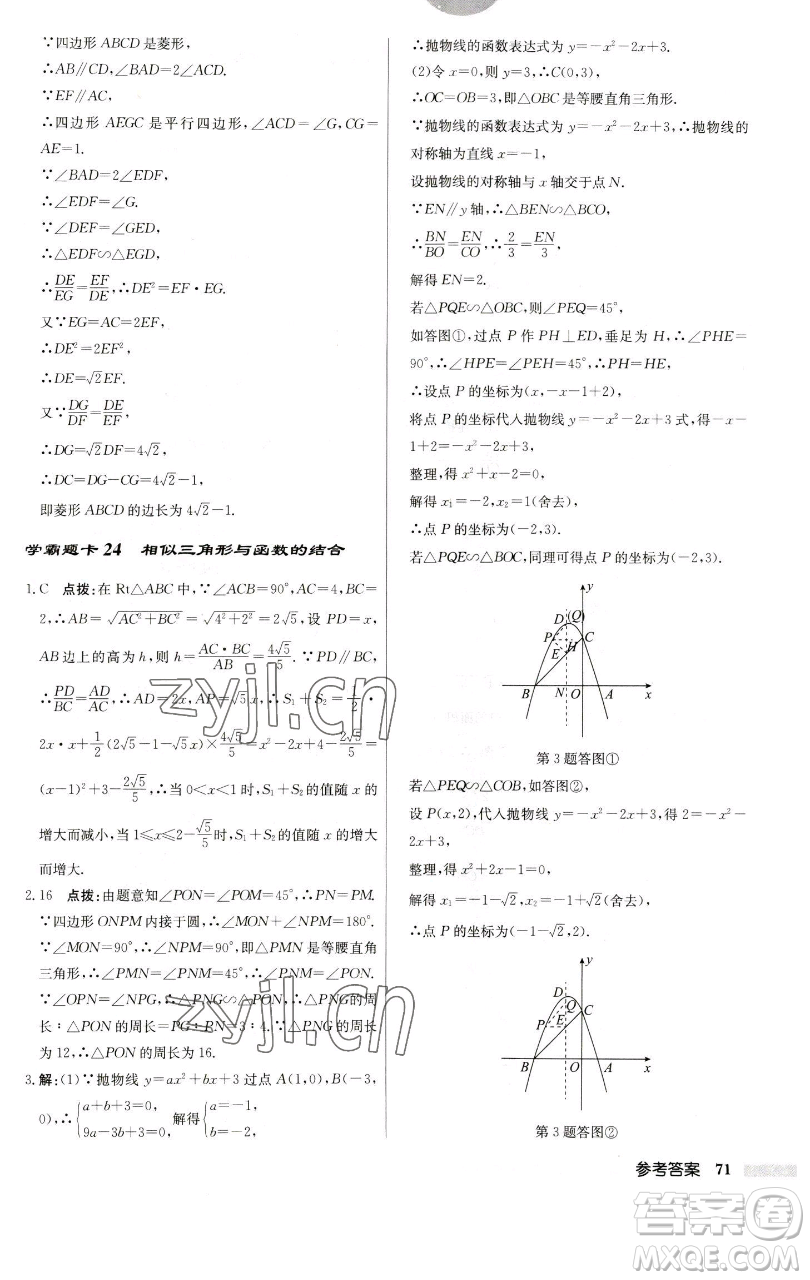 ∵四边形 ABCD 是菱形,
∴AB∥CD,∠BAD=2∠ACD.
∵EF∥AC,
∴四边形 AEGC 是平行四边形,∠ACD=∠G,CG=
AE=1.
∵∠BAD=2∠EDF,
∴∠EDF=∠G.
∵∠DEF=∠GED,
∴△EDF∽△EGD,
∴DE/EG=EF/DE,∴DE²=EF·EG.
又∵EG=AC=2EF,
∴DE²=2EF²,
∴DE=√2EF.
又∵DG/DF=DE/EF,
∴DG=√2DF=4√2,
∴DC=DG−CG=4√2−1,
即菱形 ABCD 的边长为4√2−1.
学霸题卡 24 相似三角形与函数的结合
1.C 点拨:在 Rt△ABC 中,∵∠ACB=90°,AC=4,BC=
2,∴AB=√AC²+BC²=√4²+2²=2√5,设 PD=x,
AB 边上的高为 h,则 h=AC·BC/AB=4√5/5.∵PD∥BC,
∴PD/BC=AD/AC,∴AD=2x,AP=√5x,∴S₁+S₂=1/2·
2x·x+1/2(2√5−1−√5x)×4√5/5=x²−2x+4−2√5/5=
(x−1)²+3−2√5/5,∴当 0<x<1 时,S₁+S₂的值随 x 的
增大而减小,当 1≤x≤2−√5/5时,S₁+S₂的值随 x 的增大
而增大.
2.16 点拨:由题意知∠PON=∠POM=45°,∴PN=PM.
∵四边形 ONPM 内接于圆,∴∠MON+∠NPM=180°.
∵∠MON=90°,∴∠NPM=90°,即△PMN 是等腰直角
三角形,∴∠PMN=∠PNM=45°,∴∠PNM=∠PON.
∵∠OPN=∠NPG,∴△PNG∽△PON,∴△PNG的周
长:△PON 的周长=PG:PN=3:4.∵△PNG的周长
为12,∴△PON 的周长为16.
3.解:(1)∵抛物线 y=ax²+bx+3 过点 A(1,0),B(−3,
0),∴{a+b+3=0, 9a−3b+3=0, 解得{a=−1, b=−2,
∴抛物线的函数表达式为 y=−x²−2x+3.
(2)令 x=0,则 y=3,∴C(0,3),
∴OC=OB=3,即△OBC 是等腰直角三角形.
∵抛物线的函数表达式为 y=−x²−2x+3,∴抛物线的
对称轴为直线 x=−1,
设抛物线的对称轴与 x 轴交于点 N.
∵EN∥y 轴,∴△BEN∽△BCO,
∴BN/BO=EN/CO,∴2/3=EN/3,
解得 EN=2.
若△PQE∽△OBC,则∠PEQ=45°,
如答图①,过点 P 作 PH⊥ED,垂足为 H,∴∠PHE=
90°,∴∠HPE=∠PEH=45°,∴PH=HE,
∴设点 P 的坐标为(x,−x−1+2),
将点 P 的坐标代入抛物线 y=−x²−2x+3 式,得−x−
1+2=−x²−2x+3,
整理,得 x²+x−2=0,
解得 x₁=−2,x₂=1(舍去),
∴点 P 的坐标为(−2,3).
若△PQE∽△BOC,同理可得点 P 的坐标为(−2,3).
y
D (Q)
P C
H
E
B N O A x
第 3 题答图①
若△PEQ∽△COB,如答图②,
设 P(x,2),代入抛物线 y=−x²−2x+3,得 2=−x²−
2x+3,
整理,得 x²+2x−1=0,
解得 x₁=−1−√2,x₂=−1+√2(舍去),
∴点 P 的坐标为(−1−√2,2).
y
D
Q C
P E
B O A x
第 3 题答图②
参考答案 71
zyjl.cn
zyjl.cn
答案圈
MXQE.COM